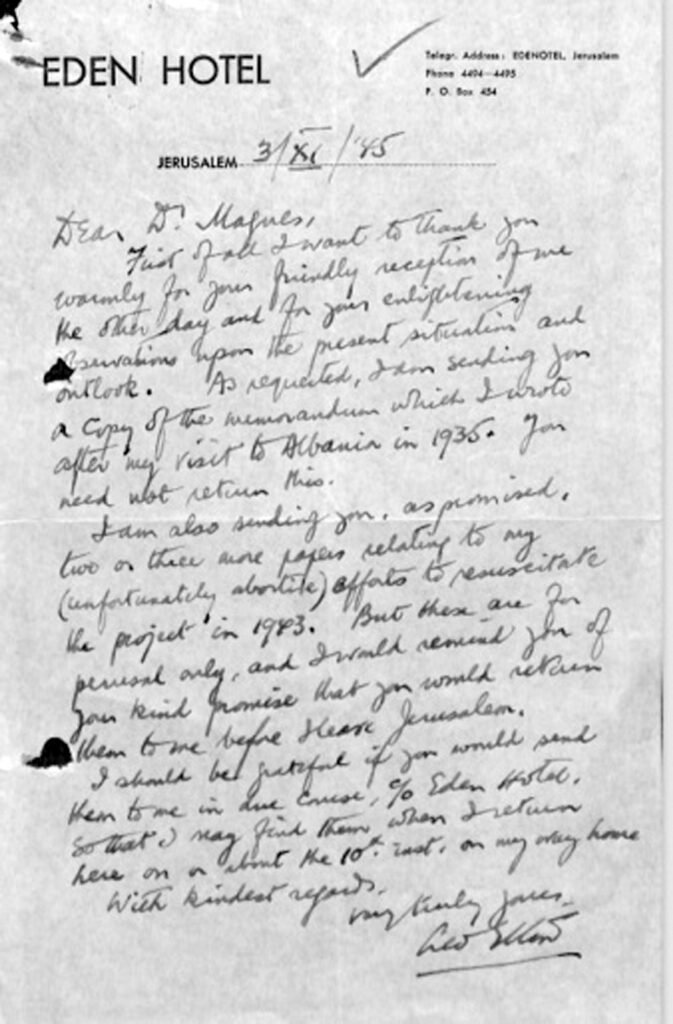 EDEN HOTEL
Telegr. Address: EDENOTEL, Jerusalem
Phone 4494—4495
P. O. Box 454
JERUSALEM 3/XI/'45
Dear Dr. Magnes,
First of all I want to thank you
warmly for your friendly reception of me
the other day and for your enlightening
observations upon the present situation and
outlook. As requested, I am sending you
a copy of the memorandum which I wrote
after my visit to Albania in 1935. You
need not return this.
I am also sending you, as promised,
two or three more papers relating to my
(unfortunately abortive) efforts to resuscitate
the project in 1943. But these are for
perusal only, and I would remind you of
your kind promise that you would return
them to me before I leave Jerusalem.
I should be grateful if you would send
them to me in due course, c/o Eden Hotel,
so that I may find them when I return
here on or about the 10th. on my way home
With kindest regards,
very truly yours,
Leo